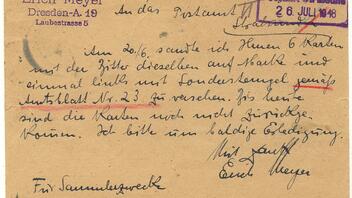 Erich Meyer
Dresden-A. 19
Laubestrasse 5
An das Postamt
26. JULI 1948
Am 20/6. sandte ich Ihnen 6 Karten
mit der Bitte dieselben auf Marke und
einmal links mit Sonderstempel gemäß
Amtsblatt Nr. 23 zu versehen. Bis heute
sind die Karten noch nicht zurückge-
kommen. Ich bitte um baldige Erledigung.
Mit
Erich Meyer
Für Sammlerzwecke